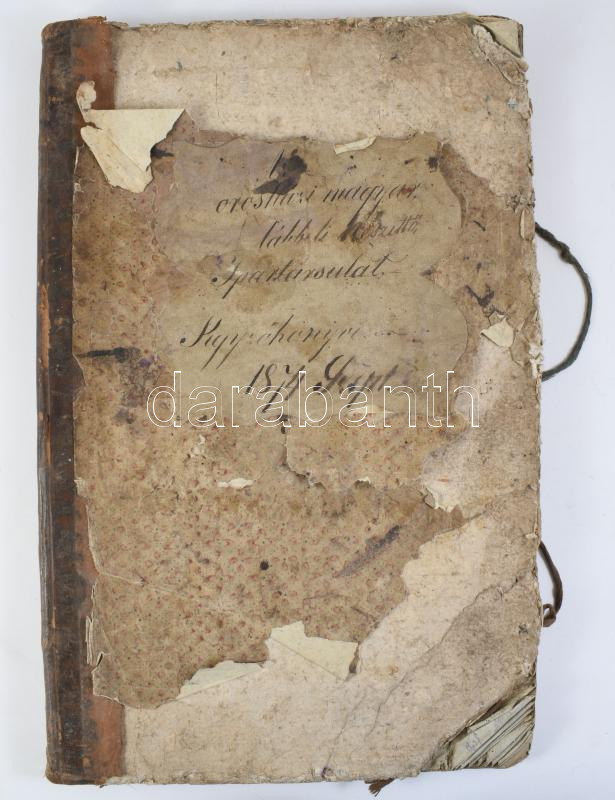 orosházi magyar
lábbeli készittő
Ipartársulat
Jegyzőkönyve
Sept
darabanth